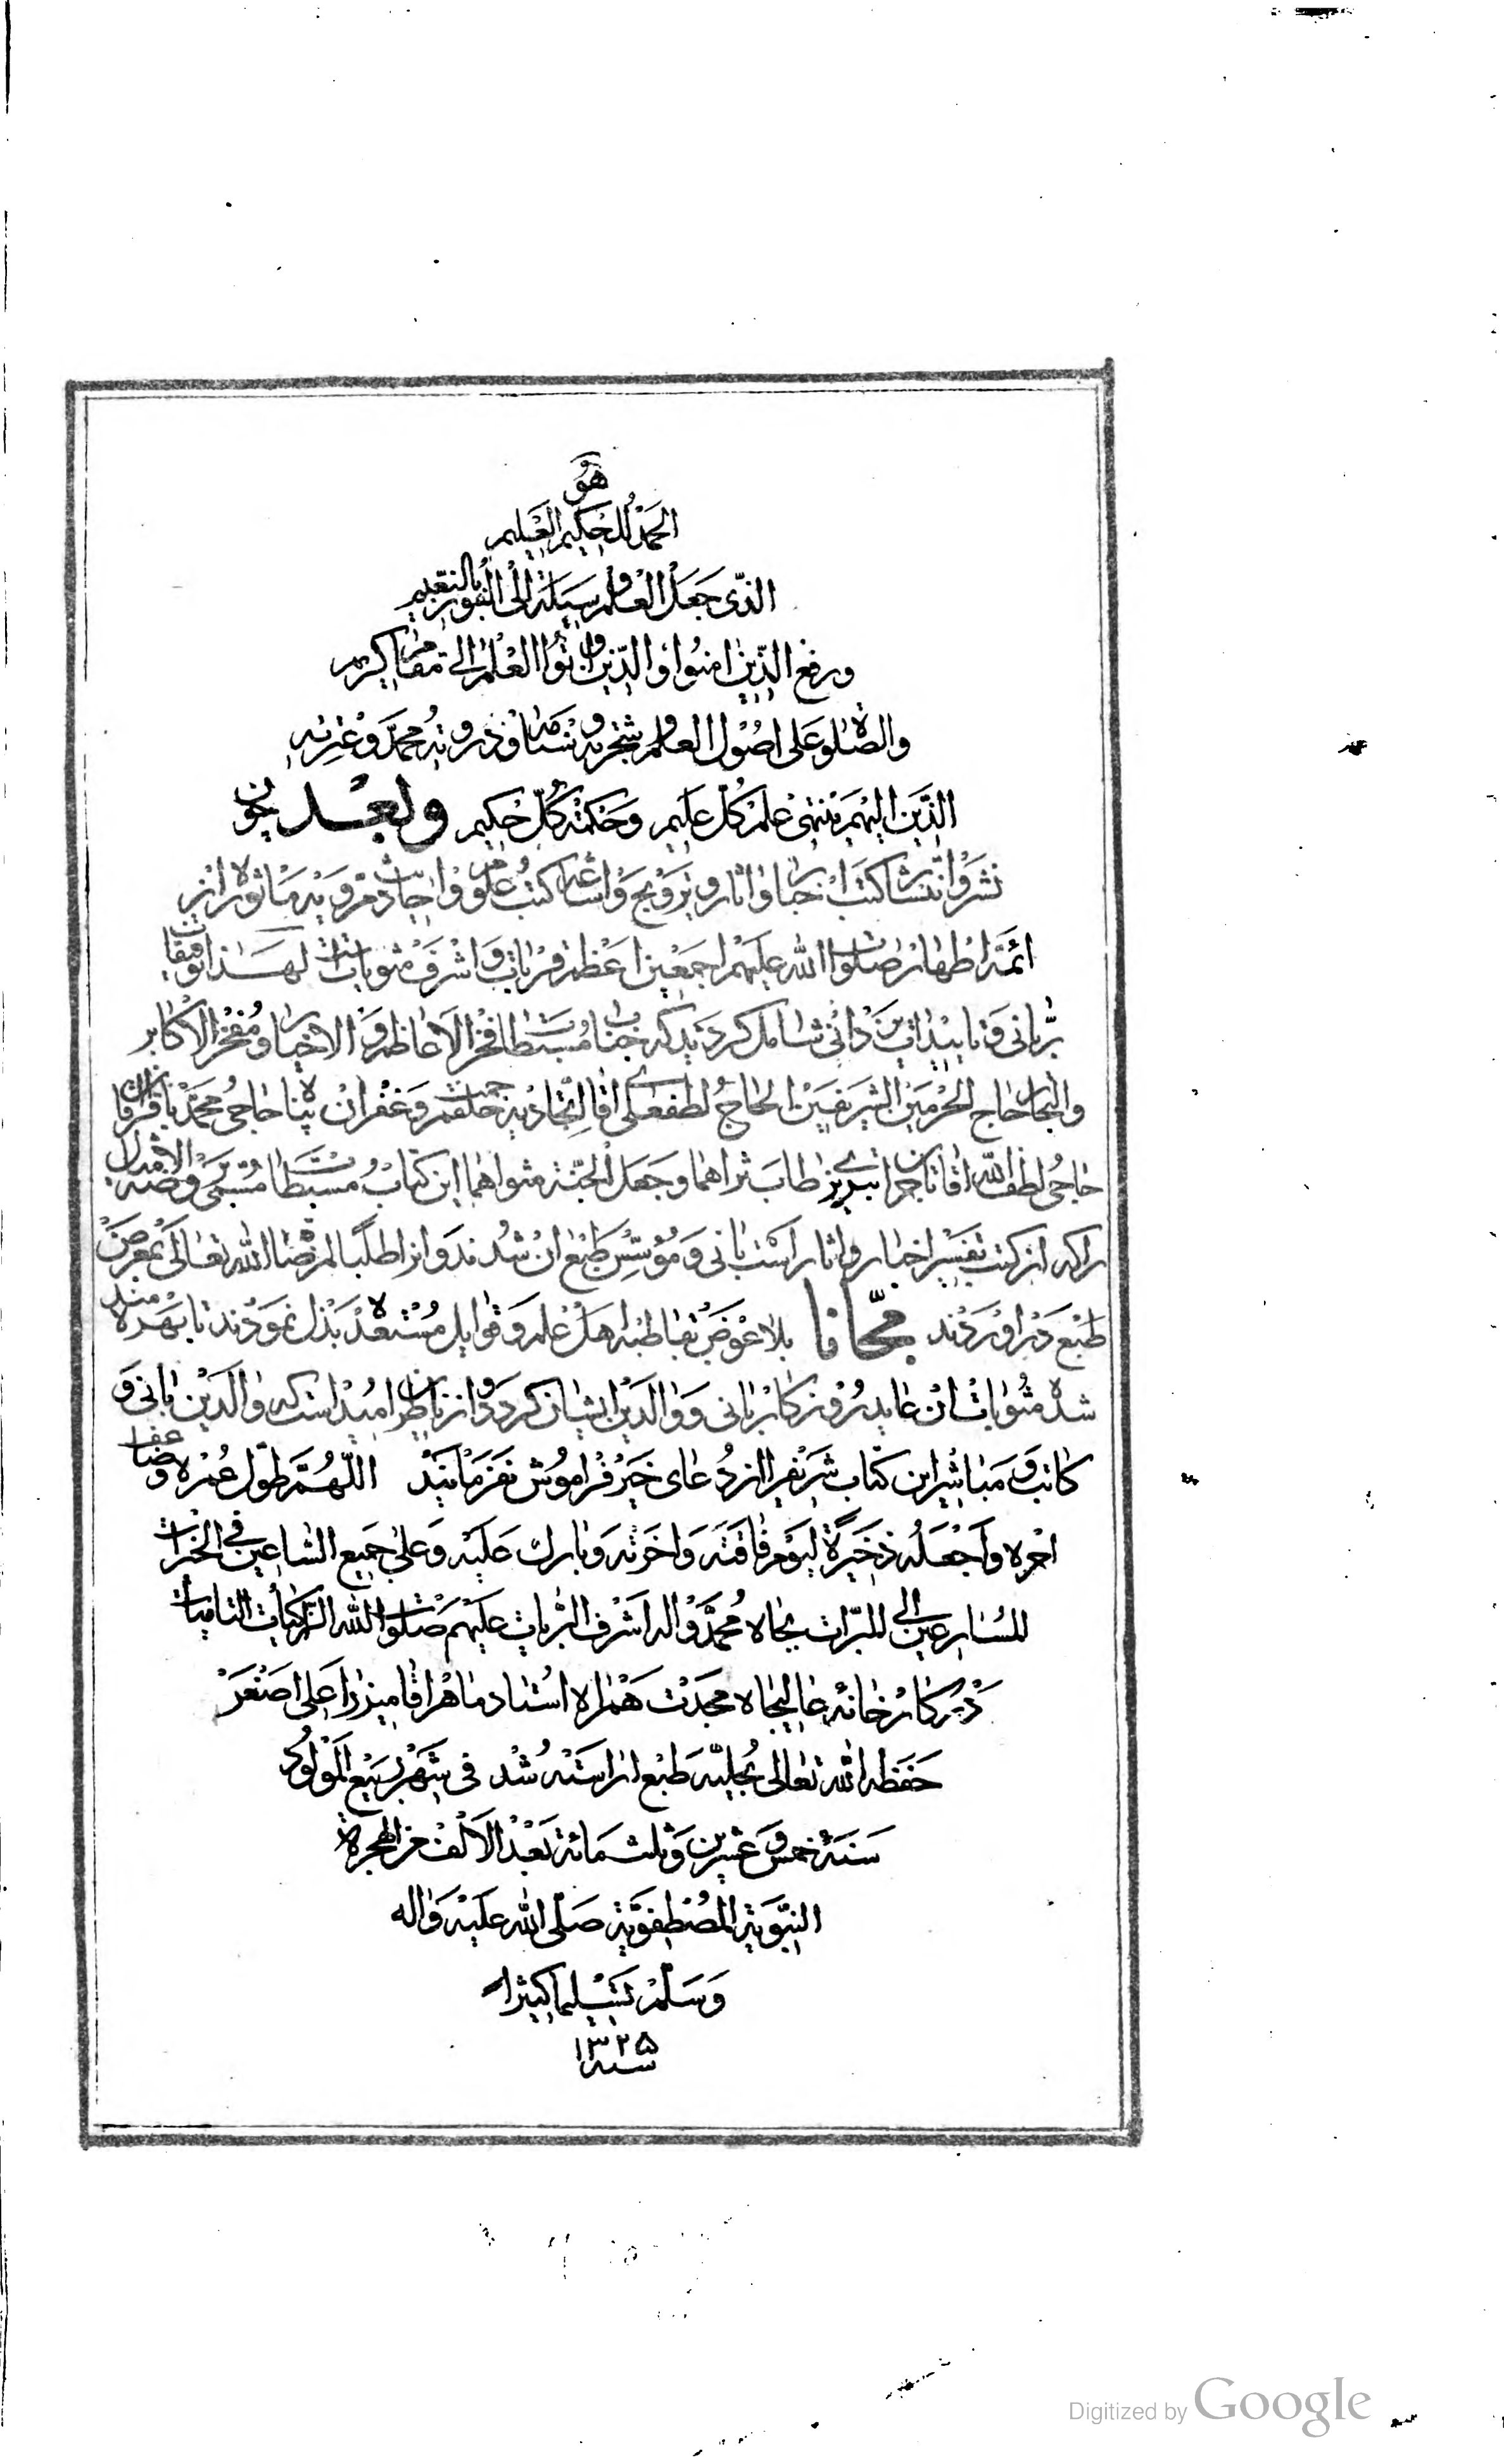 هو
الحمد للحکیم العلیم
الذی جعل العلم وسیلة الی الفوز بالنعیم
ورفع الذین امنوا والذین اوتوا العلم الی مقام کریم
والصلوة علی اصول العلم وشجرته وسنامه وذروته محمد وعترته
الذین الیهم ینتهی علم کل علیم وحکمة کل حکیم وبعد چون
نشر وانتشار کتب اخبار واثار وترویج واشاعه کتب علوم واحادیث مرویه ماثوره از
ائمه اطهار صلوات الله علیهم اجمعین اعظم قربات واشرف مثوبات است لهذا توفیقات
ربانی وتاییدات یزدانی شامل کردیدکه جناب مستطاب فخر الاعاظم والاخیار ومفخر الاکابر
والتجار حاج الحرمین الشریفین الحاج لطفعلی اقا التجار خلف مرحمت وغفران پناه حاجی محمد باقر
حاجی لطف الله اقا تاجران تبریزی طاب ثراهما وجعل الجنة مثواهما این کتاب مستطاب مسمی
راکه از کتب تفسیر اخبار واثار است بانی ومؤسس طبع ان شدند وانرا طلبا لمرضات الله تعالی بمعرض
طبع دراوردند مجانا بلاعوض بقاطبه اهل علم وقوابل مستعده بذل نمودند تا بهره مند
شده مثوبات ان عاید روزکار بانی ووالدین ایشان کردد واز ناظران امیداست که والدین بانی و
کاتب ومباشر این کتاب شریف را از دعای خیر فراموش نفرمایند اللهم طول عمره وضاعف
اجره واجعله ذخیرة لیوم فاقته واخرته وبارك علیه وعلی جمیع الساعین فی الخیرات
المسارعین الی المبرات بجاه محمد واله اشرف البریات علیهم صلوات الله الزاکیات النامیات
درکارخانه عالیجاه مجدت همراه استاد ماهر اقا میرزا علی اصغر
حفظه الله تعالی بحلیه طبع اراسته شد فی شهر ربیع المولود
سنة خمس وعشرین وثلث مائة بعد الالف من الهجرة
النبویة المصطفویة صلی الله علیه واله
وسلم تسلیما کثیرا
سنه ۱۳۲۵
Digitized by Google